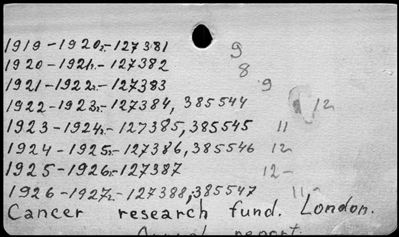 1919-1920.-127381 9
1920-1921.-127382 8
1921-1922.-127383 9
1922-1923.-127384, 385544 12
1923-1924.-127385, 385545 11
1924-1925.-127386, 385546 12
1925-1926.-127387 12-
1926-1927.-127388, 385547 11
Cancer research fund. London.
Annual report.